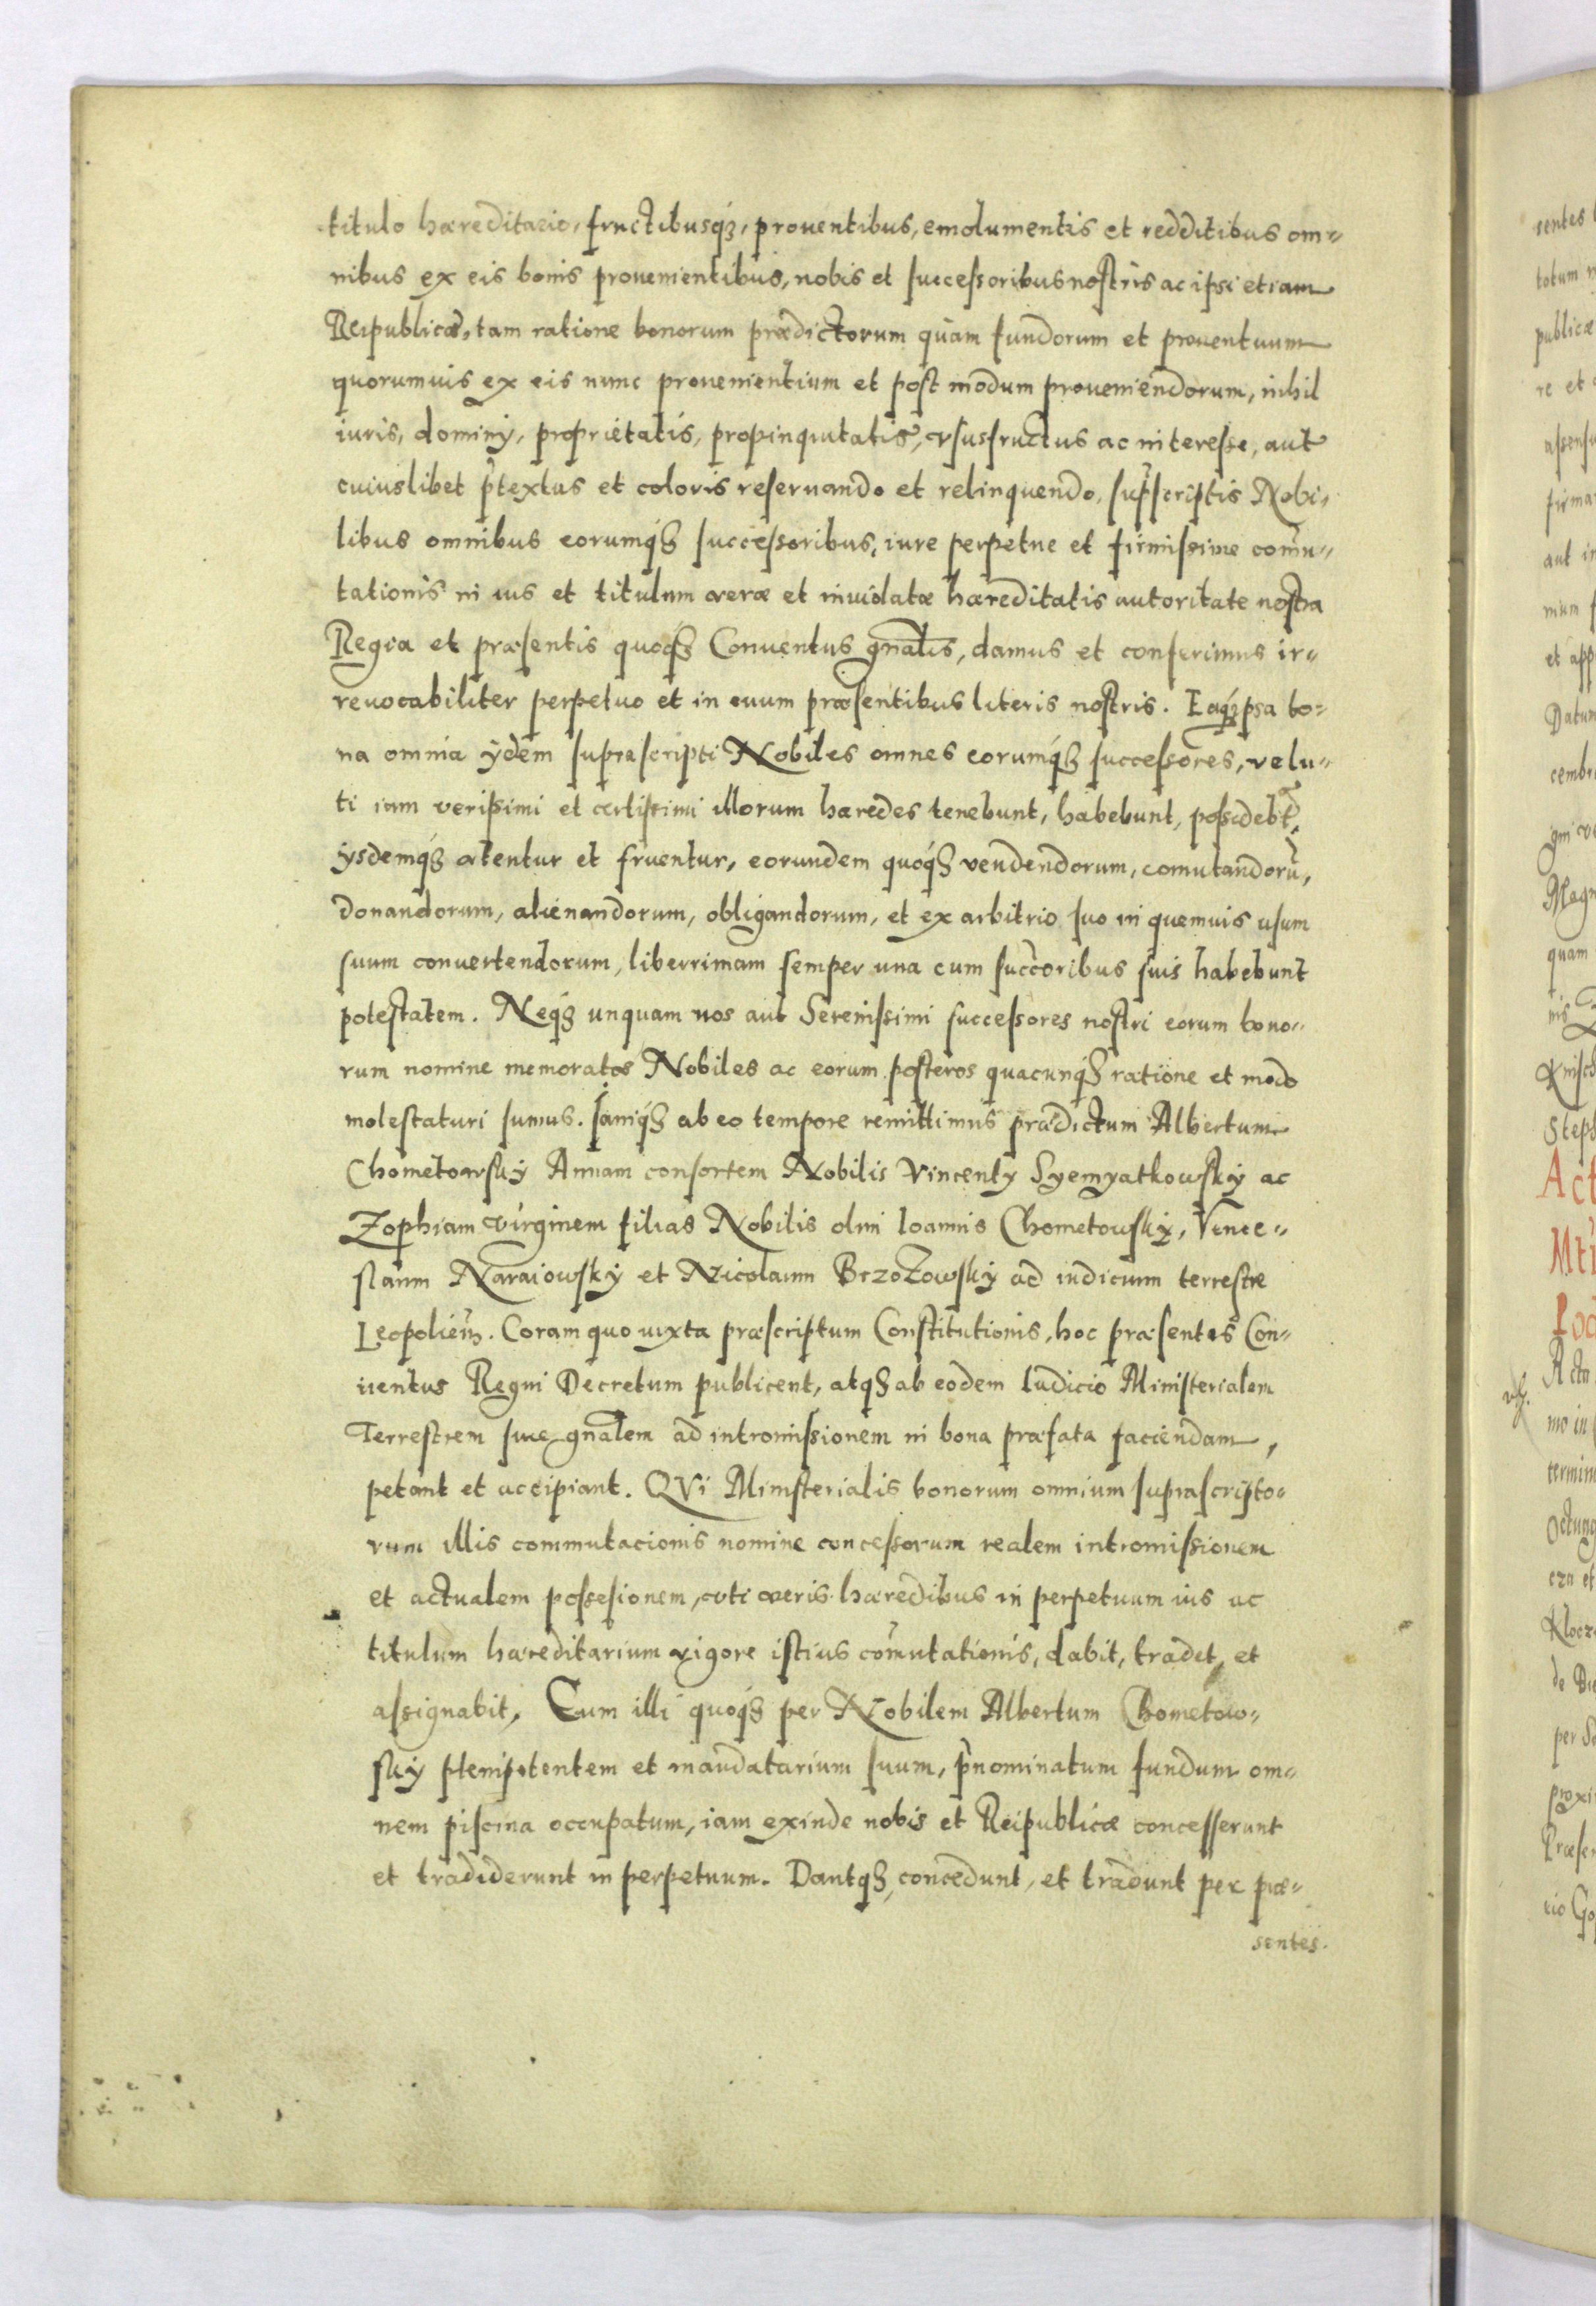 titulo hæreditario, fructibusq3, prouentibus, emolumentis et redditibus om=
nibus ex eis bonis prouenientibus, nobis et successoribus nostris ac ipsi etiam
Reipublicæ, tam ratione bonorum prædictorum quàm fundorum et prouentuum
quorumuis ex eis nunc prouenientium et post modum proueniendorum, nihil
iuris, dominÿ, proprietatis, propinquitatis, vsusfructus ac interesse, aut
cuiuslibet p̃textus et coloris reseruando et relinquendo, sup̃scriptis Nobi=
libus omnibus eorumq3 successoribus, iure perpetue et firmissime com̃u=
tationis in ius et titulum veræ et inuiolatæ hæreditatis autoritate nostra
Regia et præsentis quoq3 Conuentus gñalis, damus et conferimus ir=
reuocabiliter perpetuo et in æuum præsentibus literis nostris. Eaq3 ipsa bo=
na omnia ÿdem suprascripti Nobiles omnes eorumq3 successores, velu=
ti iam verissimi et certissimi illorum hæredes tenebunt, habebunt, possidebt,
ÿsdemq3 vtentur et fruentur, eorundem quoq3 vendendorum, comutandorũ,
donandorum, alienandorum, obligandorum, et ex arbitrio suo in quemuis usum
suum conuertendorum, liberrimam semper una cum succ̃oribus suis habebunt
potestatem. Neq3 unquam nos aut Serenissimi successores nostri eorum bono=
rum nomine memoratos Nobiles ac eorum posteros quacunq3 ratione et modo
molestaturi sumus. Iamq3 ab eo tempore remittimus prædictum Albertum
Chometowskÿ Annam consortem Nobilis Vincentÿ Syemyatkowskÿ ac
Zophiam virginem filias Nobilis olim Ioannis Chometowskÿ, Vence=
slaum Naraiowskÿ et Nicolaum Brzozowskÿ ad iudicium terrestre
Leopolieñ. Coram quo iuxta præscriptum Constitutionis, hoc præsentis Con=
uentus Regni Decretum publicent, atq3 ab eodem Iudicio Ministerialem
Terrestrem siue gñalem ad intromissionem in bona præfata faciendam,
petant et accipiant. QVi Ministerialis bonorum omnium suprascripto=
rum illis commutacionis nomine concessorum realem intromissionem
et actualem possesionem, vti veris hæredibus in perpetuum ius ac
titulum hæreditarium vigore istius com̃utationis, dabit, tradet, et
assignabit, Cum illi quoq3 per Nobilem Albertum Chometow=
skÿ plenipotentem et mandatarium suum, p̃nominatum fundum om=
nem piscina occupatum, iam exinde nobis et Reipublicæ concesserunt
et tradiderunt in perpetuum. Dantq3, concedunt, et tradunt per præ=
sentes.